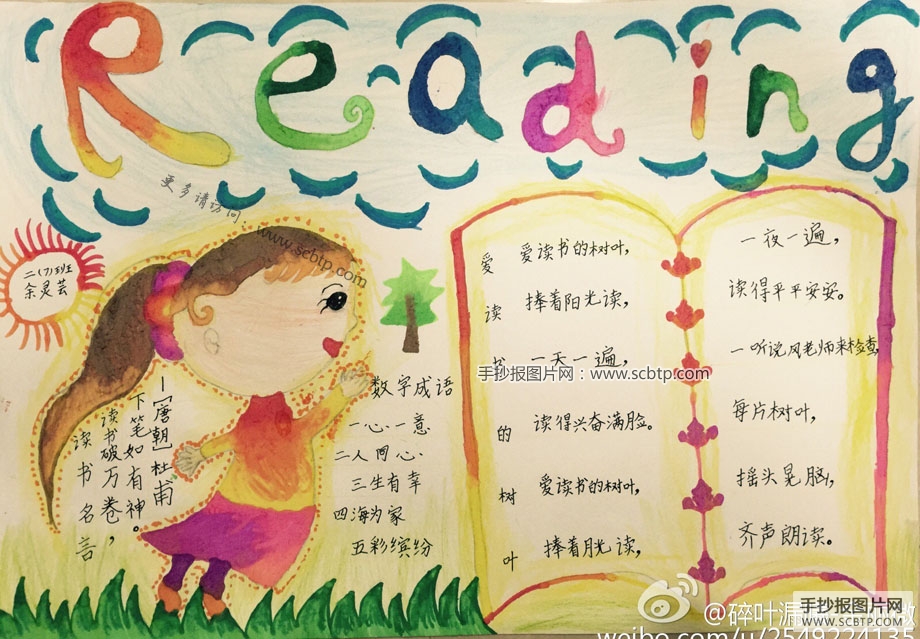 Reading
更多请访问: www.scbtp.com
二(7)班
余灵芸
读书名言
读书破万卷,
下笔如有神。
—[唐朝]杜甫
数字成语
一心一意
二人同心
三生有幸
四海为家
五彩缤纷
爱读书的树叶
爱读书的树叶,
捧着阳光读,
一天一遍,
读得兴奋满脸。
爱读书的树叶,
捧着月光读,
一夜一遍,
读得平平安安。
一听说风老师来检查,
每片树叶,
摇头晃脑,
齐声朗读。
手抄报图片网:www.scbtp.com
@碎叶漏
手抄报图片网
WWW.SCBTP.COM